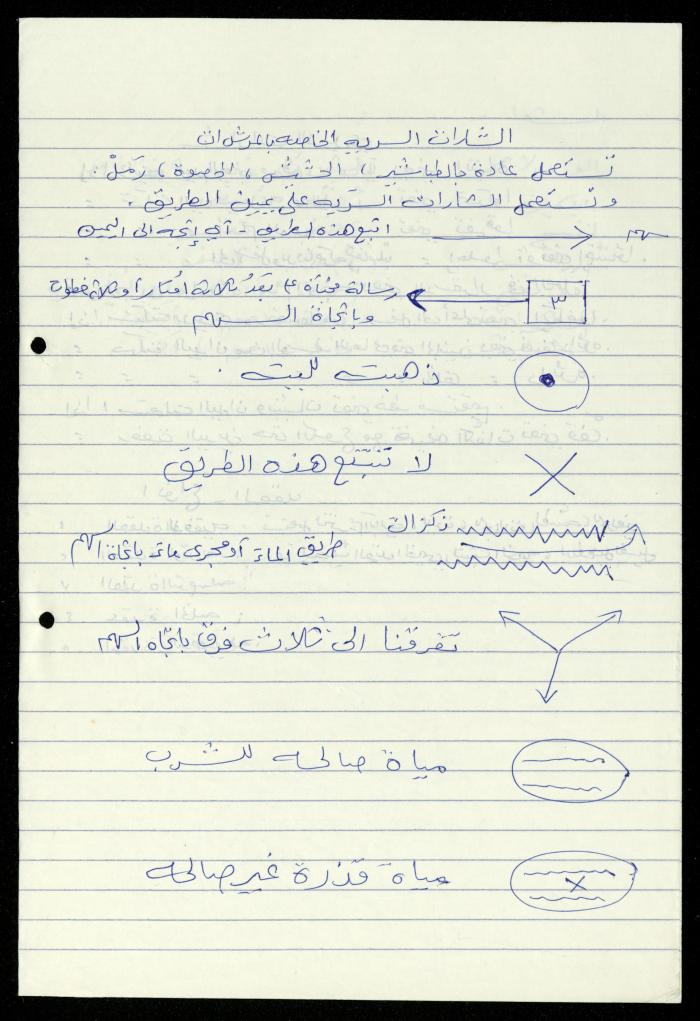 الشارات السريه الخاصه بالمرشدات
تستعمل عادة بالطباشير، الحشيش، الحصوة، رمل.
وتستعمل الشارات السريه على يمين الطريق.
سهم اتبع هذه الطريق - أي إتجه الى اليمين
٣ رسالة مخبأة على بعد ثلاثة امتار أو ثلاثة خطوات
وباتجاة السهم
ذهبت للبيت.
لا تتبع هذه الطريق
طريق الماء أو مجرى ماء باتجاة السهم
تفرقنا الى ثلاث فرق باتجاه السهم
مياة صالحه للشرب
مياة قذرة غير صالحه